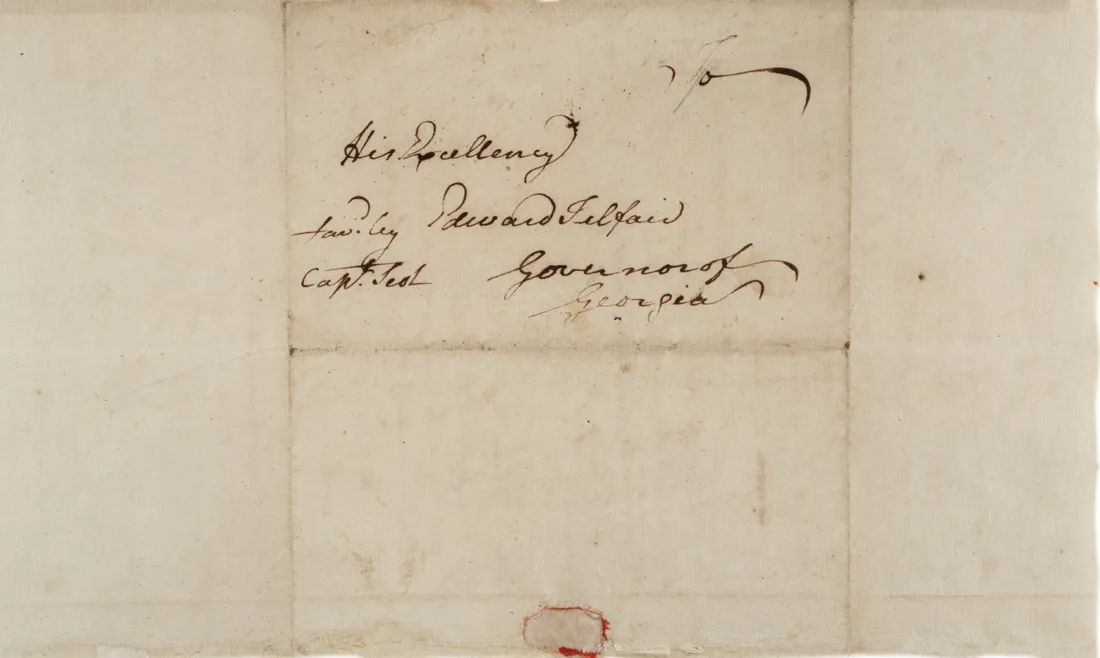 To
His Excellency
Edward Telfair
Governor of
Georgia
favr. by
Capt. Scot